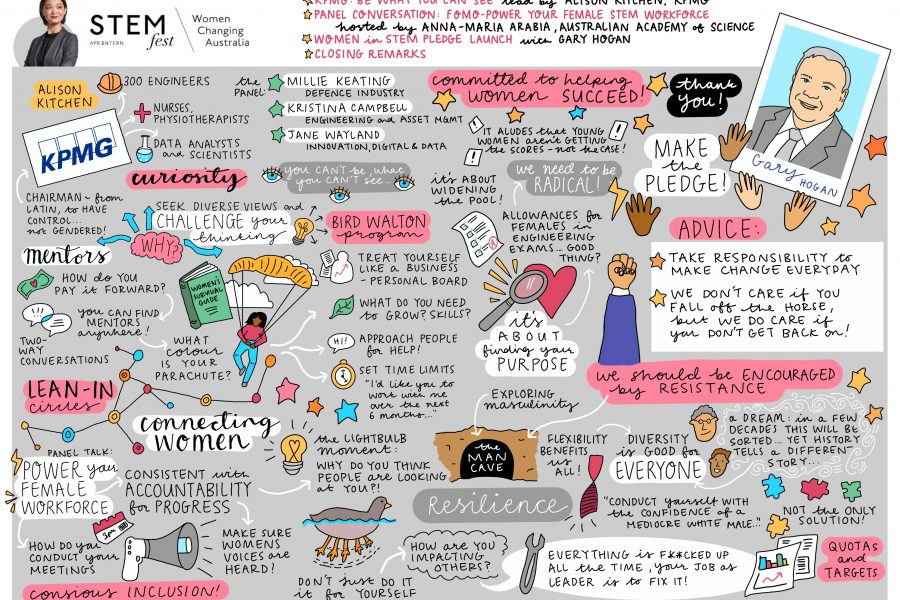 STEM
APR3NTERN
fest
Women
Changing
Australia
KPMG: BE WHAT YOU CAN SEE lead by ALISON KITCHEN, KPMG
PANEL CONVERSATION: FOMO-POWER YOUR FEMALE STEM WORKFORCE
hosted by ANNA-MARIA ARABIA, AUSTRALIAN ACADEMY of SCIENCE
WOMEN in STEM PLEDGE LAUNCH with GARY HOGAN
CLOSING REMARKS
ALISON
KITCHEN
300 ENGINEERS
NURSES,
PHYSIOTHERAPISTS
DATA ANALYSTS
and SCIENTISTS
KPMG
CHAIRMAN - from
LATIN, to HAVE
CONTROL...
not GENDERED!
curiosity
SEEK DIVERSE VIEWS and
CHALLENGE your
thinking
WHY?
the
PANEL:
MILLIE KEATING
DEFENCE INDUSTRY
KRISTINA CAMPBELL
ENGINEERING and ASSET MGMT
JANE WAYLAND
INNOVATION, DIGITAL & DATA
you CAN'T be, what
you CAN'T SEE...
committed to helping
women SUCCEED!
IT ALUDES that YOUNG
WOMEN aren't GETTING
the SCORES - not the CASE!
it's ABOUT
WIDENING
the POOL!
we need to be
RADICAL!
ALLOWANCES for
FEMALES in
ENGINEERING
EXAMS... GOOD
THING?
thank
you!
MAKE
the
PLEDGE!
Gary
HOGAN
ADVICE:
TAKE RESPONSIBILITY to
MAKE CHANGE EVERYDAY
WE DON'T CARE if YOU
FALL off the HORSE,
but WE DO CARE if
you DON'T GET BACK on!
mentors
HOW do YOU
PAY it FORWARD?
you CAN FIND
MENTORS
anywhere!
TWO-
WAY
CONVERSATIONS
WOMEN'S
SURVIVAL
GUIDE
WHAT
COLOUR
IS YOUR
PARACHUTE?
BIRD WALTON
program
TREAT YOURSELF
LIKE A BUSINESS
- PERSONAL BOARD
WHAT DO YOU NEED
to GROW? SKILLS?
HI!
APPROACH PEOPLE
for HELP!
SET TIME LIMITS
"I'd like you to
work with me
over the next
6 months..."
it's
ABOUT
finding your
PURPOSE
we SHOULD be ENCOURAGED
by RESISTANCE
LEAN-IN
circles
connecting
WOMEN
EXPLORING
masculinity
the
MAN
CAVE
FLEXIBILITY
BENEFITS
us ALL!
DIVERSITY
is GOOD for
EVERYONE
a DREAM: in a FEW
DECADES THIS WILL BE
SORTED... YET HISTORY
TELLS a DIFFERENT
STORY...
PANEL TALK:
POWER your
FEMALE
WORKFORCE
CONSISTENT with
ACCOUNTABILITY
for PROGRESS
the LIGHTBULB
moment:
WHY DO YOU THINK
PEOPLE are LOOKING
at YOU?!
Resilience
"CONDUCT yourself WITH
the CONFIDENCE of a
MEDIOCRE WHITE MALE..."
NOT the ONLY
SOLUTION!
3pm
HOW do YOU
CONDUCT your
MEETINGS
MAKE SURE
WOMENS
VOICES are
HEARD!
conscious INCLUSION!
DON'T just DO it
it for YOURSELF
HOW are YOU
IMPACTING
OTHERS?
EVERYTHING is F&#CKED UP
ALL the TIME, your JOB as
LEADER is to FIX IT!
QUOTAS
and
TARGETS